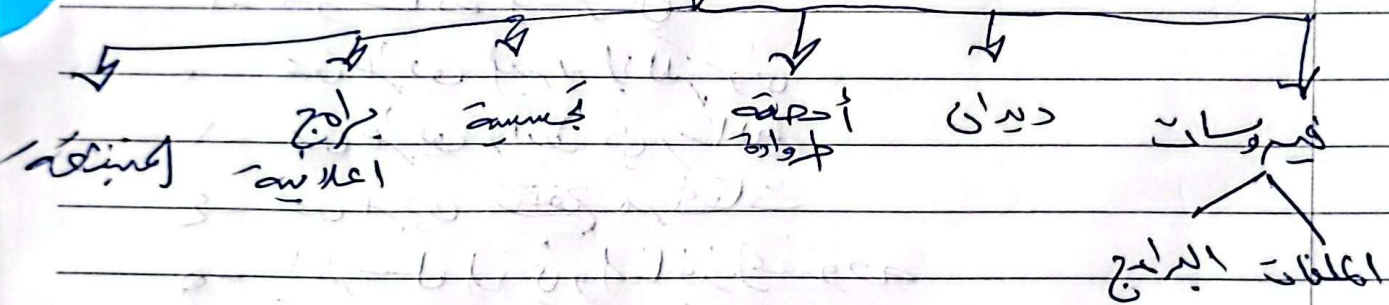 فيروسات
ديدان
أحصنة طروادة
تجسسية
برامج اعلانية
الملفات
البرامج